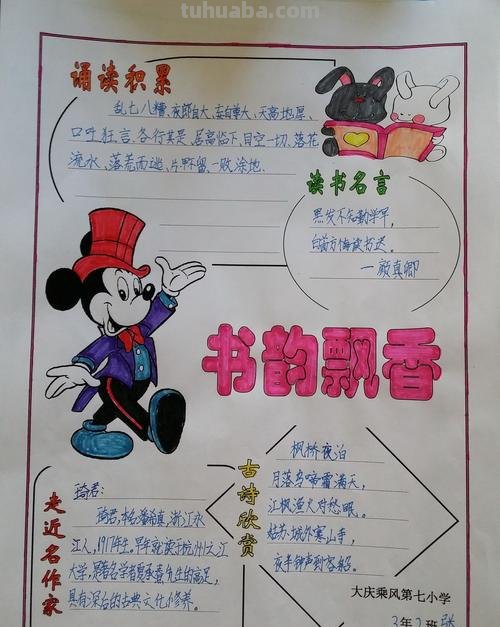 tuhuaba.com
诵读积累
乱七八糟、夜郎自大、妄自尊大、天高地厚、
口吐狂言、各行其是、居高临下、目空一切、落花
流水、落荒而逃、片甲不留、一败涂地.
读书名言
黑发不知勤学早,
白首方悔读书迟。
一颜真卿
书韵飘香
古诗欣赏
枫桥夜泊
月落乌啼霜满天,
江枫渔火对愁眠。
姑苏城外寒山寺,
夜半钟声到客船。
走近名作家
琦君:
琦君,本名潘希真,浙江永
江人,1917年生,早年就读于杭州之江
大学,是著名学者夏承焘先生的高足,
具有深后的古典文化修养。
大庆乘风第七小学
3年2班